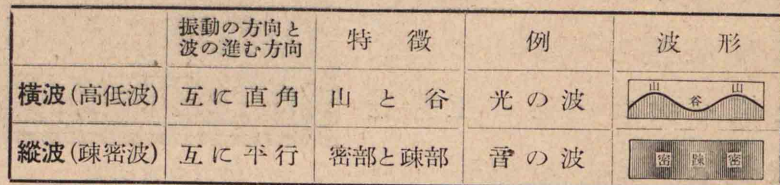 振動の方向と
波の進む方向
特徴
例
波形
橫波(高低波)
互に直角
山と谷
光の波
山 谷 山
縱波(疎密波)
互に平行
密部と疎部
音の波
密 疎 密